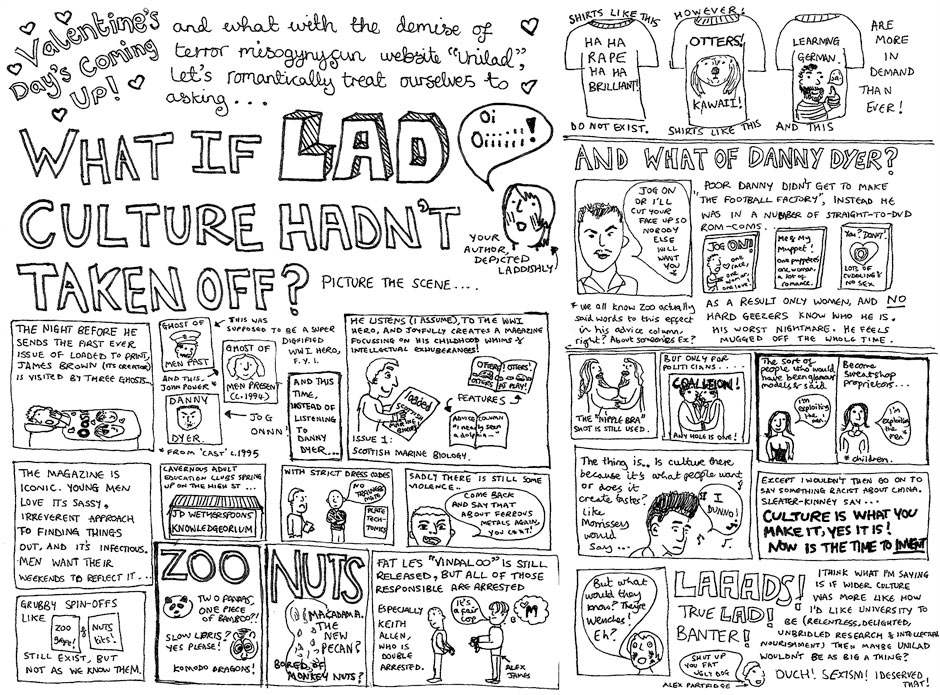 Valentine's
Day's Coming
UP!
and what with the demise of
terror misogynygun website "Unilad",
Let's romantically treat ourselves to
asking...
WHAT IF LAD
CULTURE HADN'T
TAKEN OFF?
Oi
Oiiiiii!
YOUR
AUTHOR,
DEPICTED
LADDISHLY!
PICTURE THE SCENE....
SHIRTS LIKE THIS
HA HA
RAPE
HA HA
BRILLIANT!
DO NOT EXIST.
HOWEVER!
OTTERS!
KAWAII!
SHIRTS LIKE THIS
LEARNING
GERMAN.
JA!
AND THIS
ARE
MORE
IN
DEMAND
THAN
EVER!
THE NIGHT BEFORE HE
SENDS THE FIRST EVER
ISSUE OF LOADED TO PRINT,
JAMES BROWN (ITS CREATOR)
IS VISITED BY THREE GHOSTS..
GHOST OF
MEN PAST
THIS WAS
SUPPOSED TO BE A SUPER
DIGNIFIED
WWI HERO,
F.Y.I.
GHOST OF
MEN PRESENT
(C.1994)
AND THIS..
JOHN POWER *
DANNY
DYER.
JOG
ONNN!
* FROM 'CAST' C.1995
AND THIS
TIME,
INSTEAD OF
LISTENING
TO
DANNY
DYER...
HE LISTENS (I ASSUME), TO THE WWI
HERO, AND JOYFULLY CREATES A MAGAZINE
FOCUSSING ON HIS CHILDHOOD WHIMS &
INTELLECTUAL EXHUBERANCES!
loaded
SCOTTISH
MARINE
BIOLOGY
ISSUE 1:
SCOTTISH MARINE BIOLOGY.
OTTERS! OTTERS!
OTTERS
AT PLAY!
FEATURES
ADVICE COLUMN
"I nearly seen
a dolphin~"
THE MAGAZINE IS
ICONIC. YOUNG MEN
LOVE ITS SASSY,
IRREVERENT APPROACH
TO FINDING THINGS
OUT, AND IT'S INFECTIOUS.
MEN WANT THEIR
WEEKENDS TO REFLECT IT...
CAVERNOUS ADULT
EDUCATION CLUBS SPRING
UP ON THE HIGH ST...
JD WETHERSPOONS
KNOWLEDGEORIUM
WITH STRICT DRESS CODES
NO
TRAINERS
MATE
PLATE
TECH-
TONICS
SADLY THERE IS STILL SOME
VIOLENCE..
COME BACK
AND SAY THAT
ABOUT FERROUS
METALS AGAIN,
YOU C*NT!
GRUBBY SPIN-OFFS
LIKE
ZOO
&
NUTS
STILL EXIST, BUT
NOT AS WE KNOW THEM.
ZOO
TWO PANDAS,
ONE PIECE
OF BAMBOO?!
SLOW LORIS?
YES PLEASE!
KOMODO DRAGONS!
NUTS
MACADAMIA.
THE
NEW
PECAN?
BORED OF
MONKEY NUTS?
FAT LES "VINDALOO" IS STILL
RELEASED, BUT ALL OF THOSE
RESPONSIBLE ARE ARRESTED
ESPECIALLY
KEITH
ALLEN,
WHO IS
DOUBLE
ARRESTED.
It's a
fair
cop
ALEX
JAMES
AND WHAT OF DANNY DYER?
JOG ON
OR I'LL
CUT YOUR
FACE UP SO
NOBODY
ELSE
WILL
WANT
YOU *
POOR DANNY DIDN'T GET TO MAKE
"THE FOOTBALL FACTORY", INSTEAD HE
WAS IN A NUMBER OF STRAIGHT-TO-DVD
ROM-COMS.
JOG ON!
one love!
Me & My
Muppet!
one puppeteer
one woman,
a lot of
romance.
You? Don't!
LOTS OF
CUDDLING &
NO SEX
* we all know Zoo actually
said words to this effect
in his advice column,
right? About someone's Ex?
AS A RESULT ONLY WOMEN, AND NO
HARD GEEZERS KNOW WHO HE IS.
HIS WORST NIGHTMARE. HE FEELS
MUGGED OFF THE WHOLE TIME.
THE "NIPPLE BRA"
SHOT IS STILL USED.
BUT ONLY FOR
POLITICIANS...
COALITION!
ANY HOLE IS ONE!
The sort of
people who would
have been glamour
models & said
I'm
exploiting the
men
Become
sweatshop
proprietors...
I'm
exploiting
the
men*
* children.
The thing is.. Is culture there
because it's what people want
or does it
create tastes?
Like
Morrissey
would
say...
I
DUNNO!
EXCEPT I WOULDN'T THEN GO ON TO
SAY SOMETHING RACIST ABOUT CHINA.
SLEATER-KINNEY SAY...
CULTURE IS WHAT YOU
MAKE IT, YES IT IS!
NOW IS THE TIME TO INVENT
But what
would they
know? They're
Wenches!
Eh?
LAAADS!
TRUE LAD!
BANTER!
SHUT UP
YOU FAT
UGLY DOG
ALEX PARTRIDGE
I THINK WHAT I'M SAYING
IS IF WIDER CULTURE
WAS MORE LIKE HOW
I'D LIKE UNIVERSITY TO
BE (RELENTLESS, DELIGHTED,
UNBRIDLED RESEARCH & INTELLECTUAL
NOURISHMENT) THEN MAYBE UNILAD
WOULDN'T BE AS BIG A THING?
OUCH! SEXISM! I DESERVED
THAT!